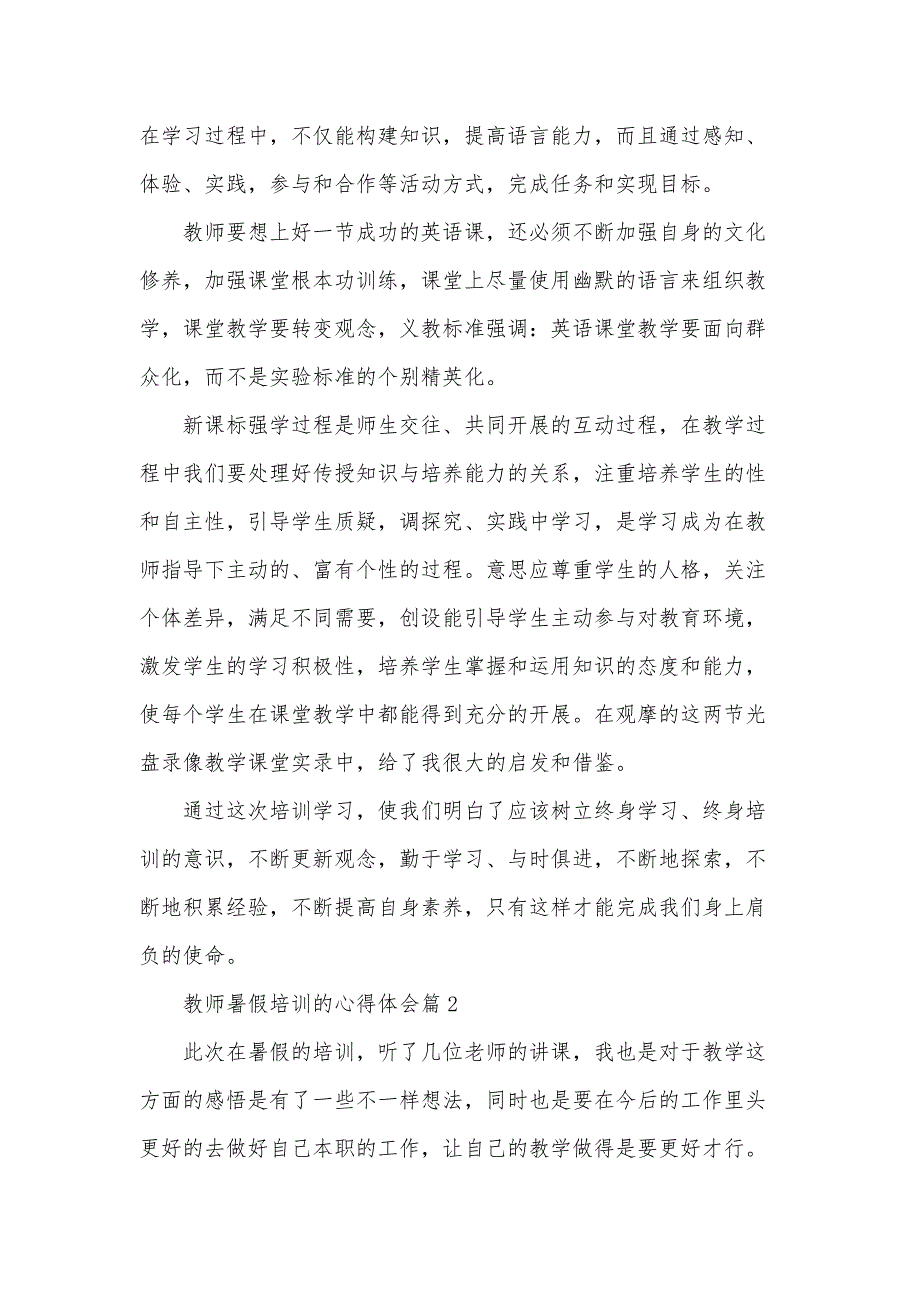 在学习过程中，不仅能构建知识，提高语言能力，而且通过感知、
体验、实践，参与和合作等活动方式，完成任务和实现目标。
教师要想上好一节成功的英语课，还必须不断加强自身的文化
修养，加强课堂根本功训练，课堂上尽量使用幽默的语言来组织教
学，课堂教学要转变观念，义教标准强调：英语课堂教学要面向群
众化，而不是实验标准的个别精英化。
新课标强学过程是师生交往、共同开展的互动过程，在教学过
程中我们要处理好传授知识与培养能力的关系，注重培养学生的性
和自主性，引导学生质疑，调探究、实践中学习，是学习成为在教
师指导下主动的、富有个性的过程。意思应尊重学生的人格，关注
个体差异，满足不同需要，创设能引导学生主动参与对教育环境，
激发学生的学习积极性，培养学生掌握和运用知识的态度和能力，
使每个学生在课堂教学中都能得到充分的开展。在观摩的这两节光
盘录像教学课堂实录中，给了我很大的启发和借鉴。
通过这次培训学习，使我们明白了应该树立终身学习、终身培
训的意识，不断更新观念，勤于学习、与时俱进，不断地探索，不
断地积累经验，不断提高自身素养，只有这样才能完成我们身上肩
负的使命。
教师暑假培训的心得体会篇2
此次在暑假的培训，听了几位老师的讲课，我也是对于教学这
方面的感悟是有了一些不一样想法，同时也是要在今后的工作里头
更好的去做好自己本职的工作，让自己的教学做得是要更好才行。